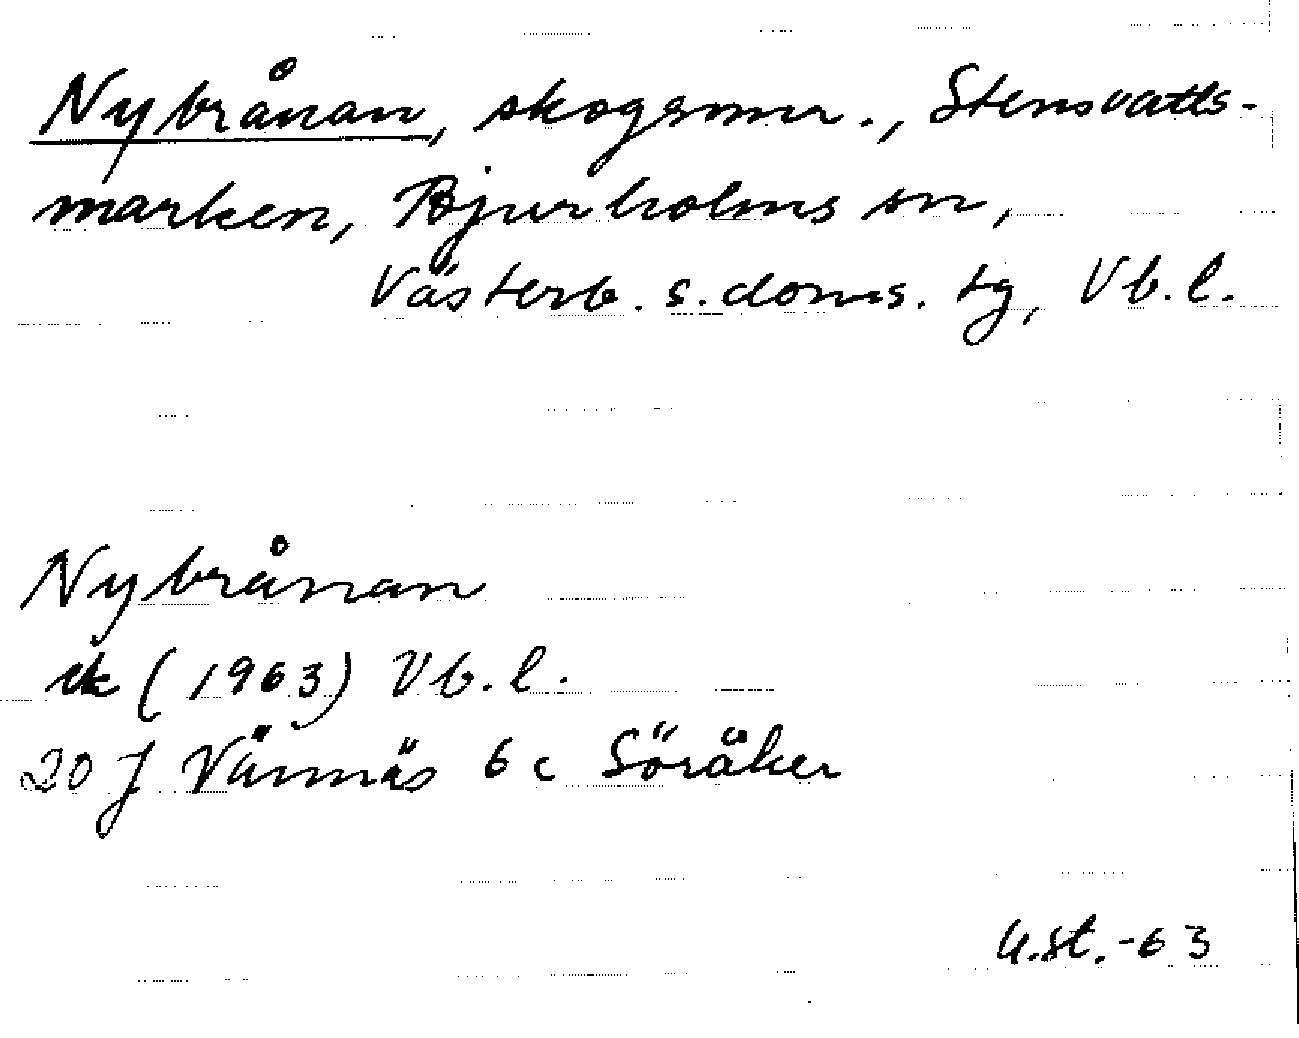 Nybrånan, skogsomr., Stensvatts-
marken, Bjurholms sn,
Västerb. s. doms. tg, Vb. l.
Nybrånan
ek (1963) Vb. l.
20 J Vännäs 6 c Söråker
U.st. -63